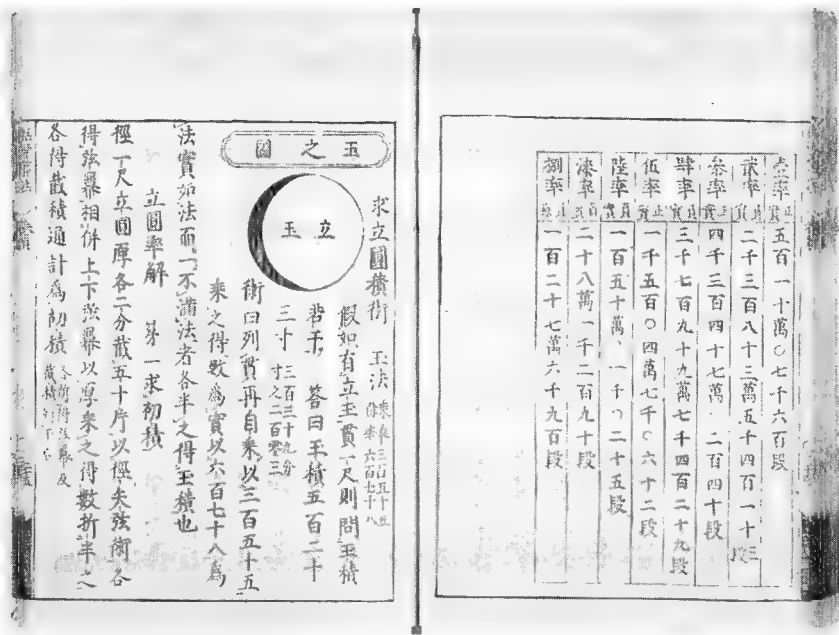 壹率 正實 五百一十萬〇七千六百段
貳率 負實 二千三百八十三萬五千四百一十三段
參率 正實 四千三百四十七萬 二百四十段
肆率 負實 三千七百九十九萬七千四百二十九段
伍率 正實 一千五百〇四萬七千〇六十二段
陸率 負實 一百五十萬 一千〇二十五段
漆率 二十八萬一千二百九十段
捌率 一百二十七萬六千九百段
玉之圖
立玉
求立圓積術 玉法 乘率三百五十五 除率六百七十八
假如有立玉貫一尺則問玉積
若干 答曰玉積五百二十
三寸 三百三十九分寸之二百零三
術曰列貫再自乘以三百五十五
乘之得數爲實以六百七十八爲
法實如法而一不滿法者各半之得玉積也
立圓率解 第一求初積
徑一尺立圓厚各二分截五十片以徑矢弦術各
得弦冪相併上下弦冪以厚乘之得數折半之
各得截積通計爲初積